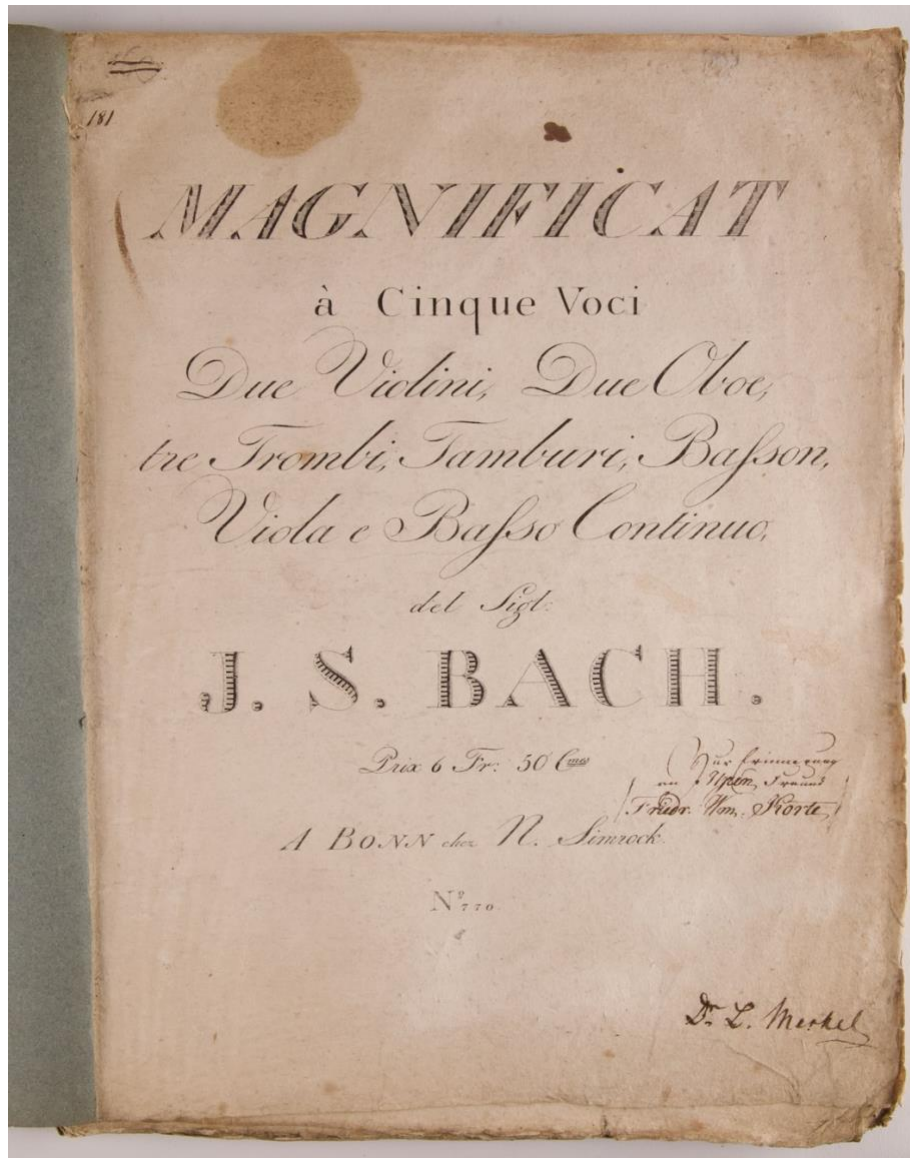 181
MAGNIFICAT
à Cinque Voci
Due Violini, Due Oboe,
tre Trombi, Tamburi, Basson,
Viola e Basso Continuo,
del Sigl:
J. S. BACH.
Prix 6 Fr: 50 Cmes
Zur Erinnerung
an Freund
Friedr. Wm. Korte,
A BONN chez N. Simrock.
Nº 770
Dr. L. Merkel